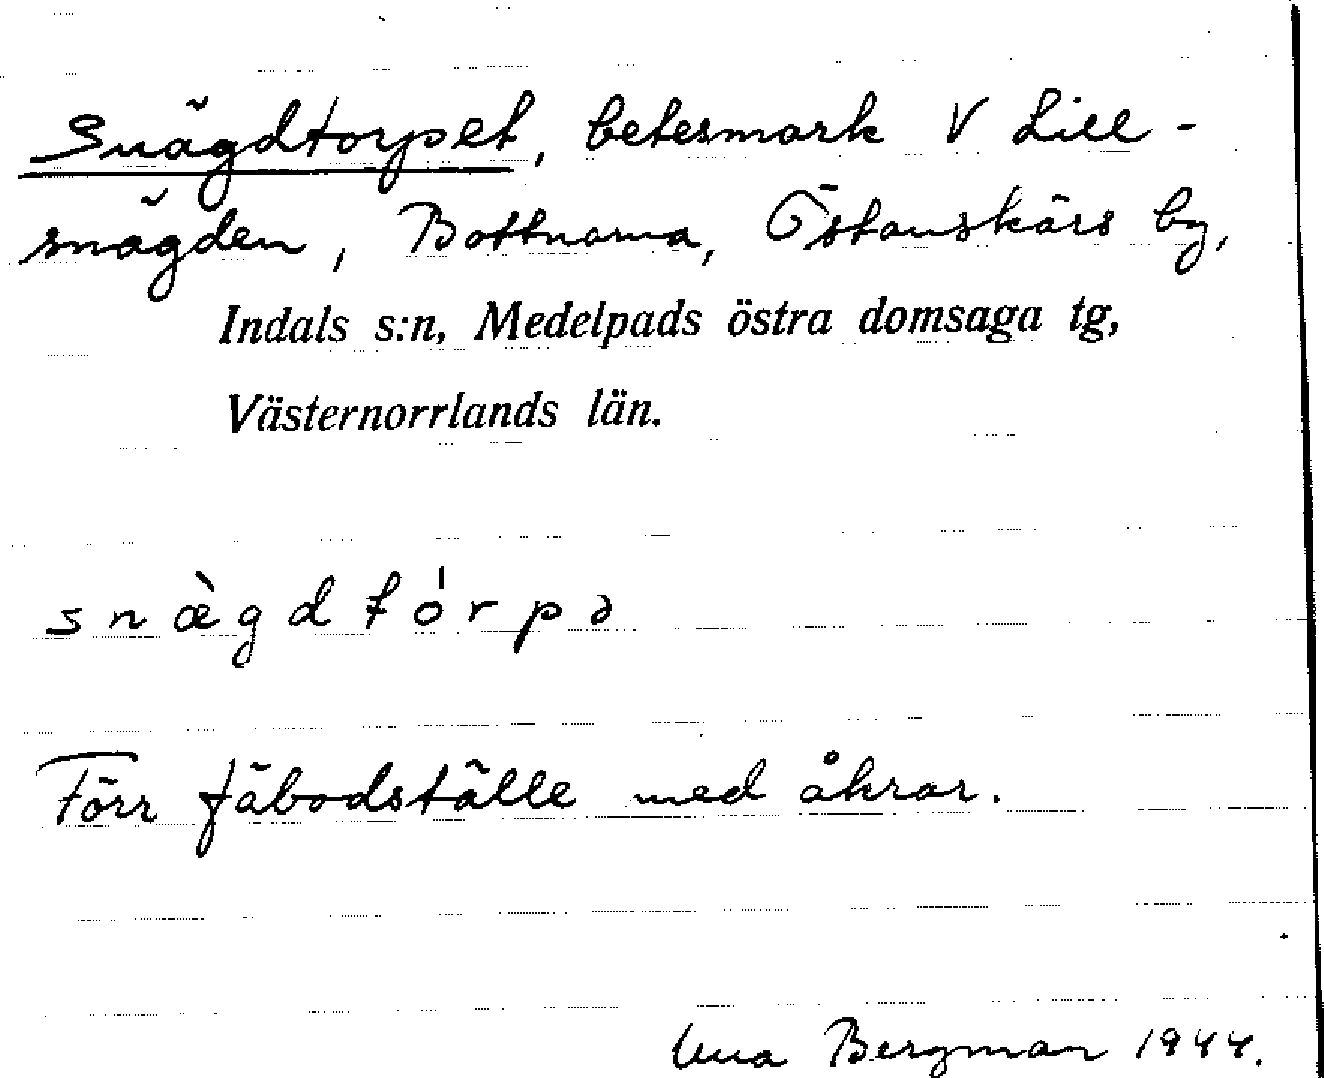 Snägdtorpet, betesmark V Lill-
snägden, Bottnarna, Östanskärs by,
Indals s:n, Medelpads östra domsaga tg,
Västernorrlands län.
snæ̀gdtórpə
Förr fäbodställe med åkrar.
Bergman 1944.